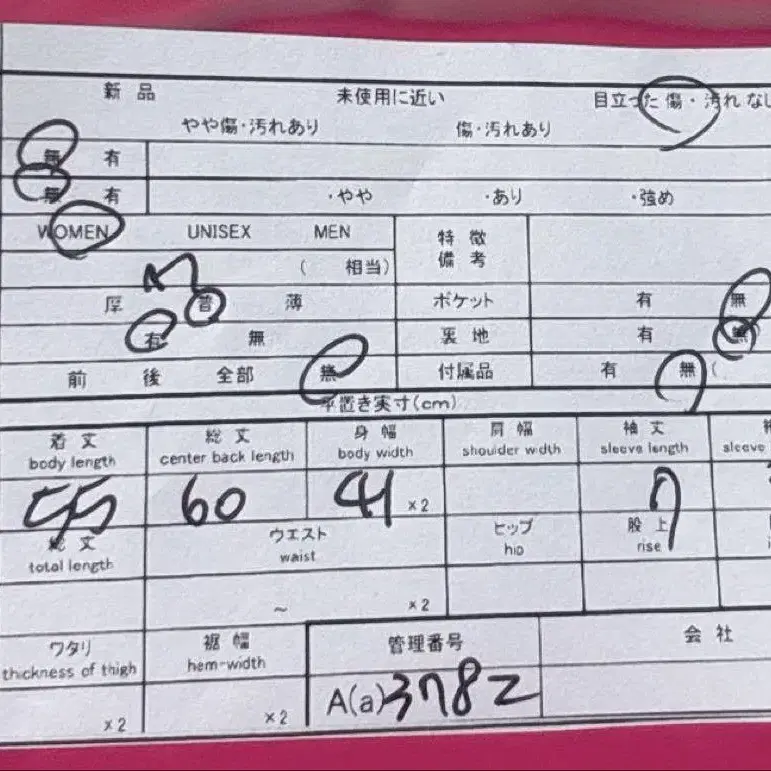 新品 未使用に近い 目立った傷・汚れなし
やや傷・汚れあり 傷・汚れあり
無 有
無 有 ・やや ・あり ・強め
WOMEN UNISEX MEN 特徴
備考
M ( 相当)
厚 普 薄 ポケット 有 無
有 無 裏地 有 無
前 後 全部 無 付属品 有 無 (
平置き実寸(cm)
着丈 総丈 身幅 肩幅 袖丈
body length center back length body width shoulder width sleeve length sleeve
55 60 41 ×2 7
総丈 ウエスト ヒップ 股上
total length waist hip rise
~ ×2
ワタリ 裾幅 管理番号 会社
thickness of thigh hem-width
×2 ×2 A(a)3782